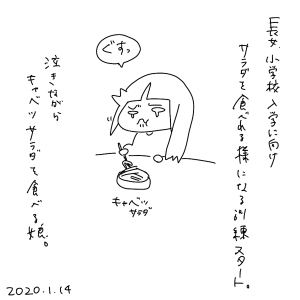 長女小学校入学に向け
サラダを食べれる様になる訓練スタート。
ぐすっ
キャベツ
サラダ
泣きながら
キャベツサラダを食べる娘。
2020.1.14